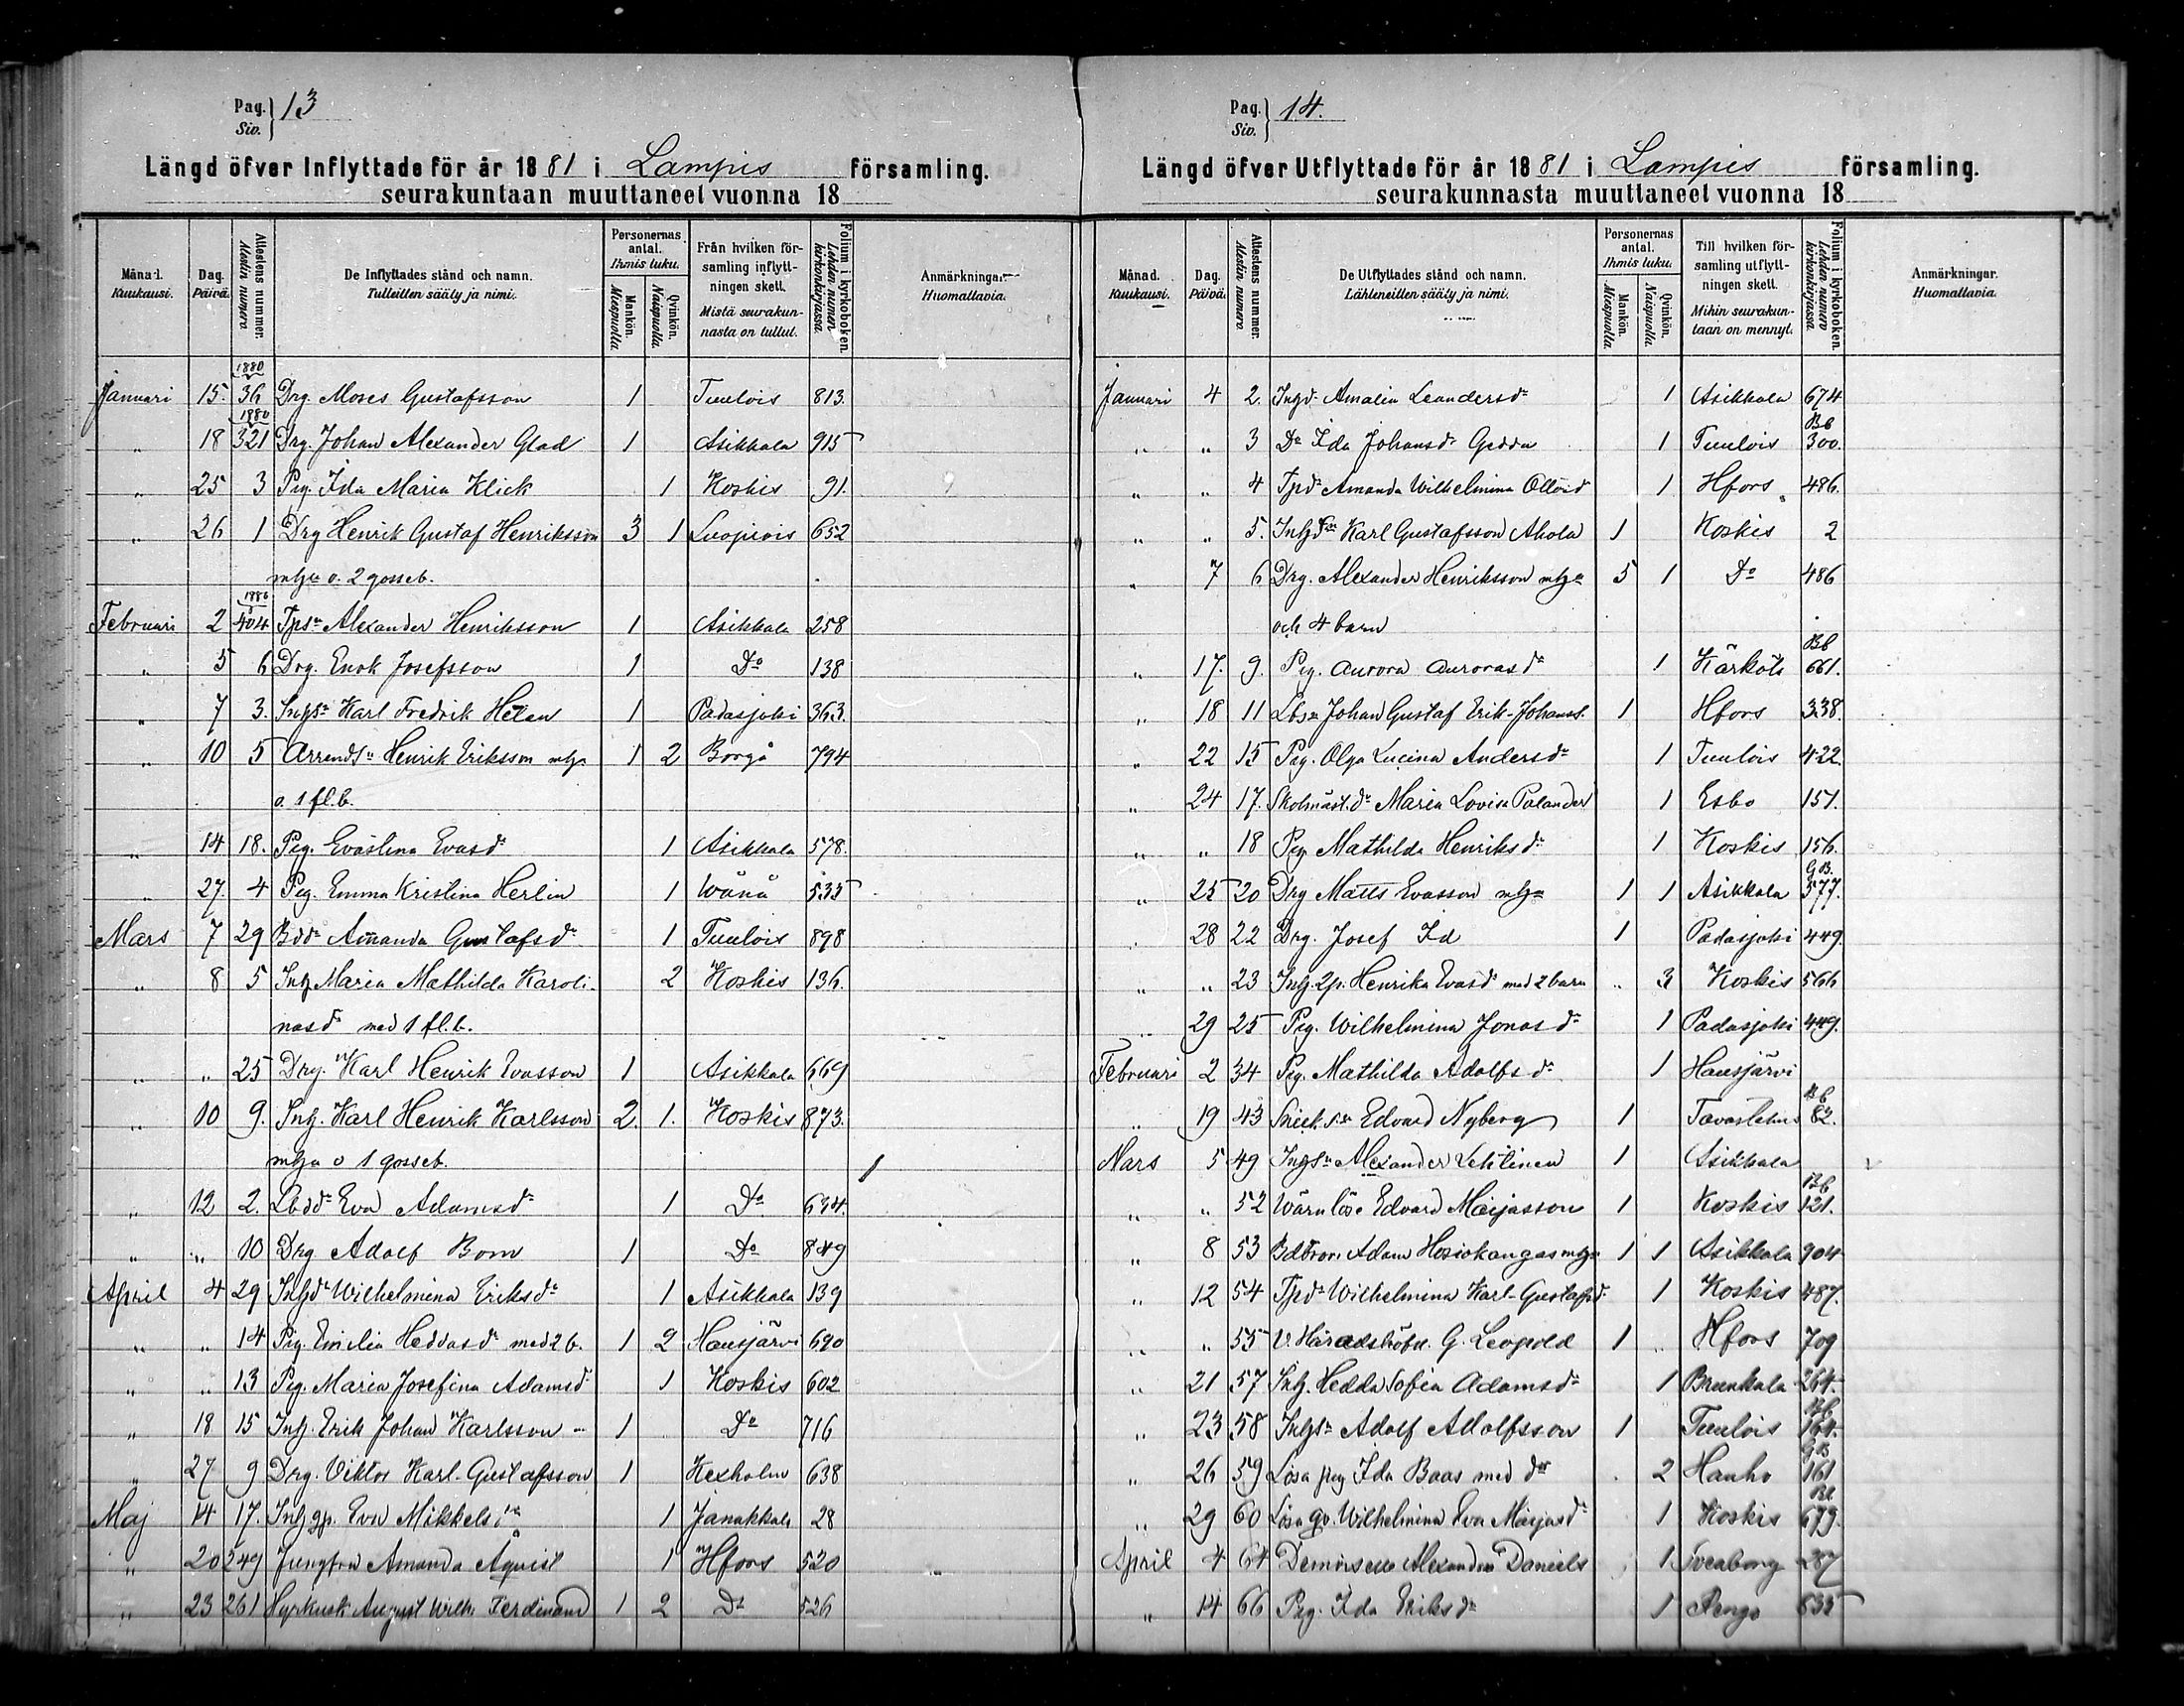 Pag. 13
Siv.
Längd öfver Inflyttade för år 1881 i Lampis församling.
seurakuntaan muuttaneet vuonna 18
Månad. Kuukausi. Dag. Päivä. Attestens nummer. Alestin numero. De Inflyttades stånd och namn. Tulleitten sääty ja nimi. Personernas antal. Ihmis luku. Mankön. Miespuolia. Qvinkön. Naispuolia. Från hvilken församling inflyttningen skett. Mistä seurakunnasta on tullut. Folium i kyrkoboken. Lehden numero kirkonkirjassa. Anmärkningar. Huomattavia.
1880
Januari 15. 36 Drg. Moses Gustafsson 1 Tuulois 813.
1880
„ 18 321 Drg. Johan Alexander Glad 1 Asikkala 915
„ 25 3 Pig. Ida Maria Klick 1 Koskis 91.
„ 26 1 Drg Henrik Gustaf Henriksson 3 1 Luopiois 652
mhja o. 2 gosseb.
1880
Februari 2 404 Tps:n Alexander Henriksson 1 Asikkala 258
„ 5 6 Drg. Enok Josefsson 1 D:o 138
„ 7 3. Inhs:n Karl Fredrik Helan 1 Padasjoki 363.
„ 10 5 Arrends:n Henrik Eriksson mhja 1 2 Borgå 794
o. 1 fl.b.
„ 14 18. Pig. Evastina Evasd:r 1 Asikkala 578.
„ 27. 4 Pig. Emma Kristina Herlin 1 Wånå 535
Mars 7 29 Bdd:r Amanda Gustafsd:r 1 Tuulois 898
„ 8 5 Inh. Maria Mathilda Karoli- 2 Koskis 136.
nasd:r med 1 fl.b.
„ „ 25 Drg. Karl Henrik Evasson 1 Asikkala 669
„ 10 9. Inh. Karl Henrik Karlsson 2. 1. Koskis 873.
mhja o 1 gosseb.
„ 12 2. Lbdd:r Eva Adamsd:r 1 D:o 634.
„ „ 10 Drg Adolf Bom 1 D:o 849
April 4 29 Inhd:r Wilhelmina Eriksd:r 1 Asikkala 139
„ „ 14 Pig. Emilia Heddasd:r med 2 b. 1 2 Hausjärvi 690
„ „ 13 Pig. Maria Josefina Adamsd:r 1 Koskis 602
„ 18 15 Inh. Erik Johan Karlsson 1 D:o 716
„ 27 9 Drg. Viktor Karl-Gustafsson 1 Kexholm 638
Maj 14 17. Inh. gp. Eva Mikkels 1 Janakkala 28
„ 20 249 Jungfrun Amanda Åqvist 1 Hfors 520
„ 23 261 Hyrkusk August Wilh. Ferdinand 1 2 D:o 526
Pag. 14.
Siv.
Längd öfver Utflyttade för år 1881 i Lampis församling.
seurakunnasta muuttaneet vuonna 18
Månad. Kuukausi. Dag. Päivä. Attestens nummer. Alestin numero. De Utflyttades stånd och namn. Lähteneitten sääty ja nimi. Personernas antal. Ihmis luku. Mankön. Miespuolia. Qvinkön. Naispuolia. Till hvilken församling utflyttningen skett. Mihin seurakuntaan on mennyt. Folium i kyrkoboken. Lehden numero kirkonkirjassa. Anmärkningar. Huomattavia.
Januari 4 2. Inhd:r Amalia Leandersd:r 1 Asikkala 674
„ „ 3 D:o Ida Johansd:r Gedda 1 Tuulois Bb 300.
„ „ 4 Tpd:r Amanda Wilhelmina 1 Hfors 486.
„ „ 5. Karl Gustafsson Ahola 1 Koskis 2
„ 7 6 Drg. Alexander Henriksson mhja 5 1 D:o 486
och 4 barn
„ 17. 9. Pig. Aurora Aurorasd:r 1 Kärkölä Bb 661.
„ 18 11 Lbs:n Johan Gustaf Erik-Johanss. 1 Hfors 338.
„ 22 15 Pig. Olga Lucina Andersd:r 1 Tuulois 422.
„ 24 17. Skolmäst.d:r Maria Lovisa Palander 1 Esbo 151.
„ „ 18 Pig Mathilda Henriksd:r 1 Koskis 156.
„ 25 20 Drg Matts Evasson mhja 1 1 Asikkala G.B. 577.
„ 28 22 Drg. Josef Id 1 Padasjoki 449.
„ „ 23 Inh. Henrika Evasd:r med 2 barn „ 3 Koskis 566
„ 29 25 Pig. Wilhelmina Jonasd:r 1 Padasjoki 449.
Februari 2 34 Pig. Mathilda Adolfsd:r 1 Hausjärvi
„ 19 43 Edvard Nyberg 1 Tavastehus Bb 82.
Mars 5 49 Inhs:n Alexander Lehtinen 1 Asikkala
„ „ 52 Wärnlöse Edvard Maijasson 1 Koskis Bb 121.
„ 8 53 Adam Hosiokangas mhja 1 1 Asikkala 904
„ 12 54 Tpd:r Wilhelmina Karl-Gustafsd. 1 Koskis 487.
„ „ 55 V. Häradshöfd. G. Leopold 1 „ Hfors 709
„ 21 57 Inh. Hedda Sofia Adamsd:r 1 Brunkala 264.
„ 23 58 Inhs:n Adolf Adolfsson 1 Tuulois Bb 164.
„ 26 59 Lösa pig Ida Baas med d:r 2 Hauho GB 161
„ 29 60 Lösa qv. Wilhelmina Eva Maijasd:r 1 Koskis 679.
April 4 64 Demoiselle Alexandra Daniels 1 Sveaborg 287
„ 14 66 Pig. Ida Eriksd:r 1 Rengo 635